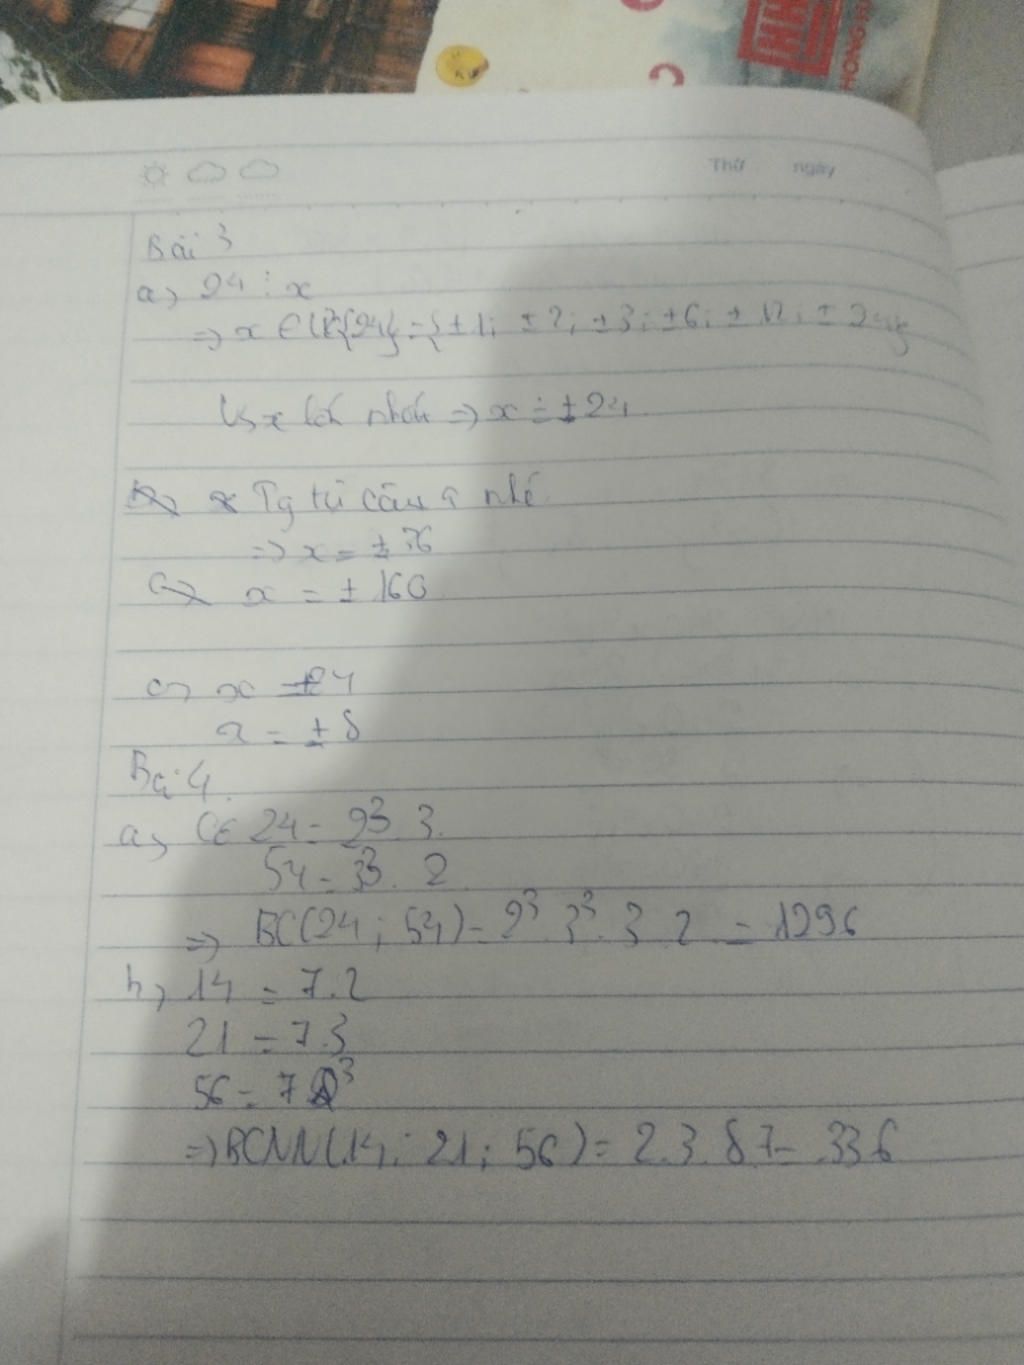 HỒNG
Thứ ngày
Bài 3
a, 24 ⋮ x
⇒ x ∈ Ư{24} = {±1; ±2; ±3; ±6; ±12; ±24}
Vs x lớn nhất ⇒ x = ±24
b, x Tg tự câu a nhé
⇒ x = ±36
c, x = ±160
c, x = ±24
x = ±8
Bài 4
a, Có 24 = 2³. 3.
54 = 3³. 2
⇒ BC(24; 54) = 2³. 3³. 3. 2 = 1296
b, 14 = 7.2
21 = 7.3
56 = 7.2³
⇒ BCNN(14; 21; 56) = 2.3.8.7 = 336